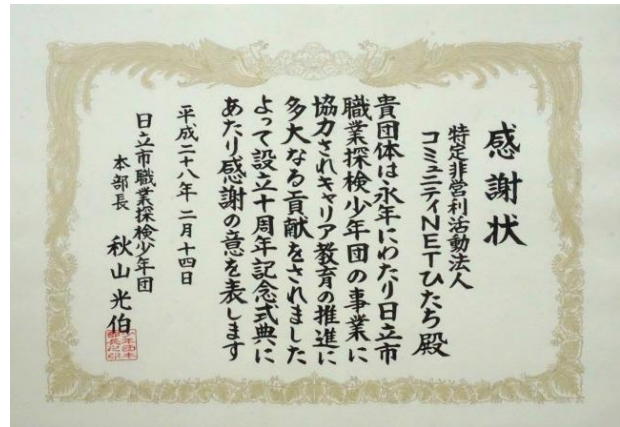 感謝状
特定非営利活動法人
コミュニティNETひたち殿
貴団体は永年にわたり日立市
職業探検少年団の事業に
協力されキャリア教育の推進に
多大なる貢献をされました
よって設立十周年記念式典に
あたり感謝の意を表します
平成二十八年二月十四日
日立市職業探検少年団
本部長 秋山光伯